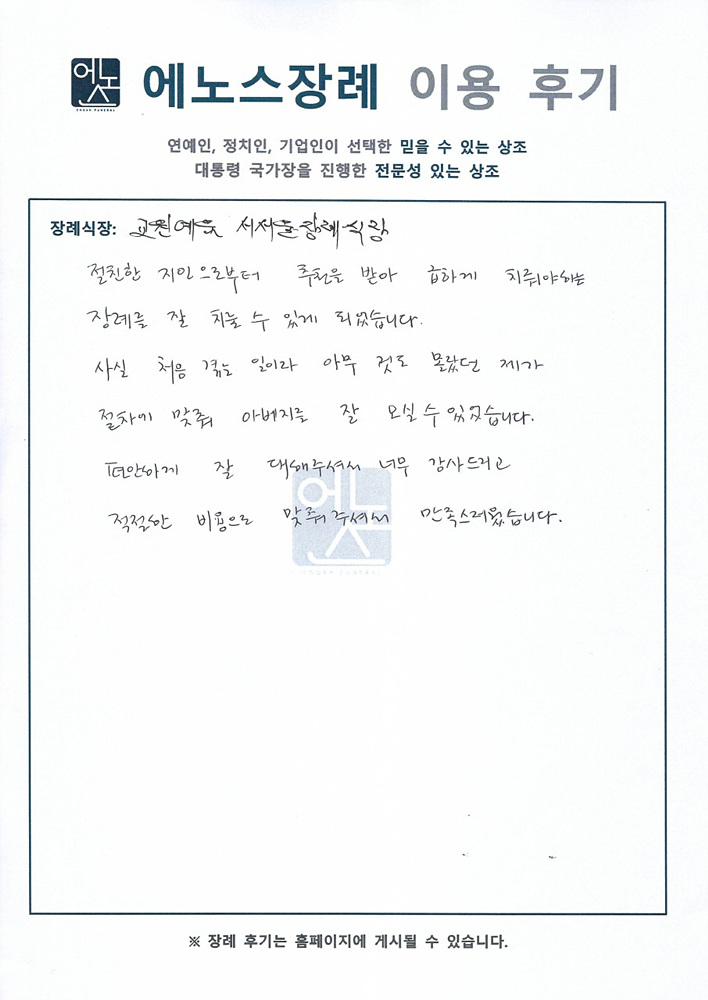 에노스장례 이용 후기
연예인, 정치인, 기업인이 선택한 믿을 수 있는 상조
대통령 국가장을 진행한 전문성 있는 상조
장례식장: 교원예움 서서울장례식장
절친한 지인으로부터 추천을 받아 급하게 치뤄야하는
장례를 잘 치룰 수 있게 되었습니다.
사실 처음 겪는 일이라 아무 것도 몰랐던 제가
절차에 맞춰 아버지를 잘 모실 수 있었습니다.
편안하게 잘 대해주셔서 너무 감사드리고
적절한 비용으로 맞춰 주셔서 만족스러웠습니다.
에노스
※ 장례 후기는 홈페이지에 게시될 수 있습니다.